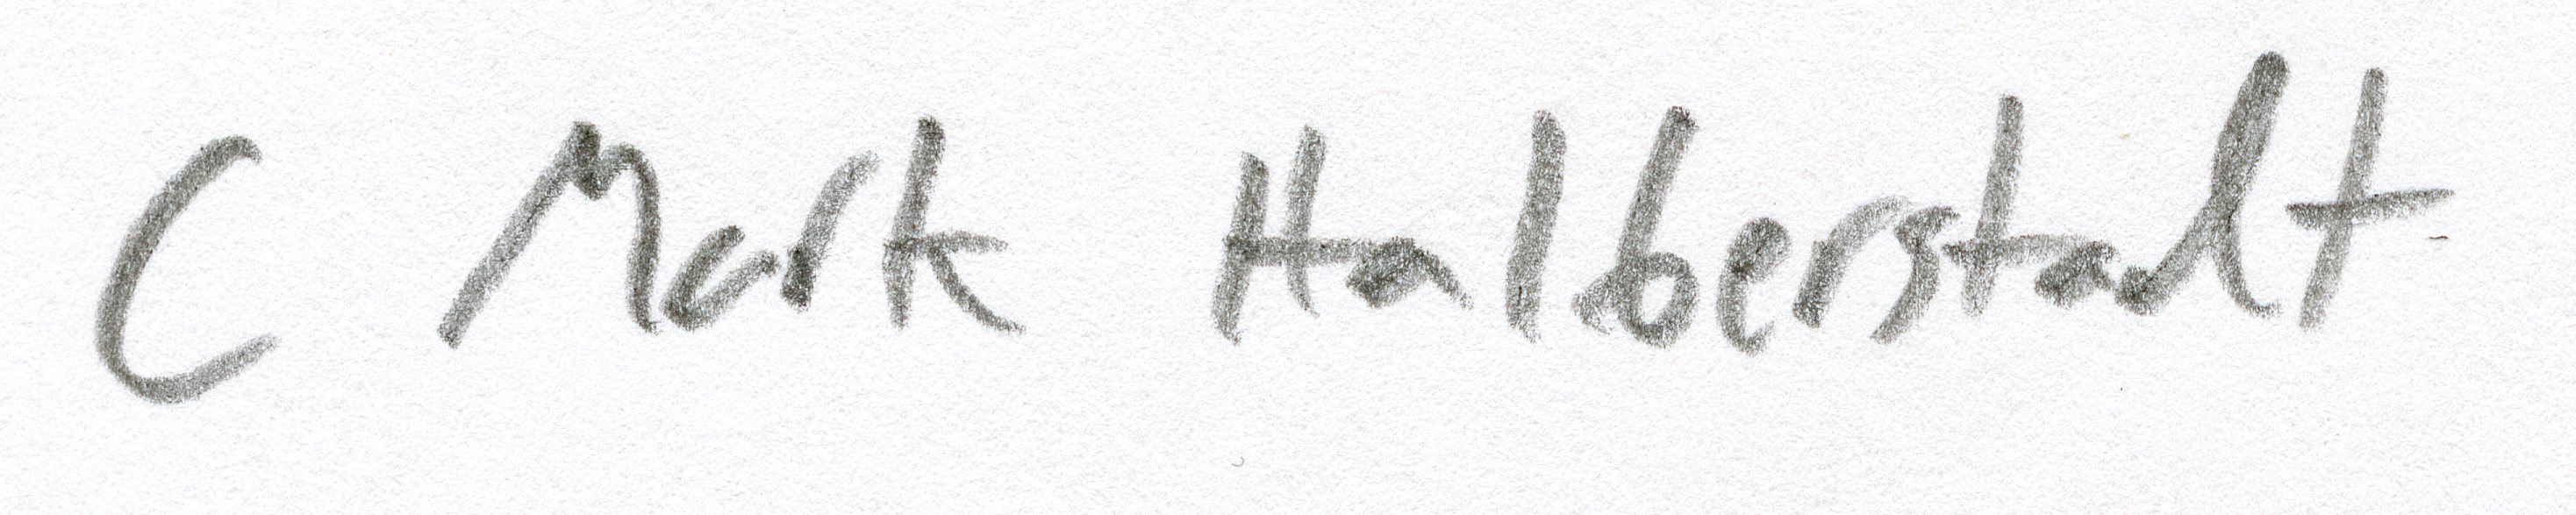 C Mark Halberstadt